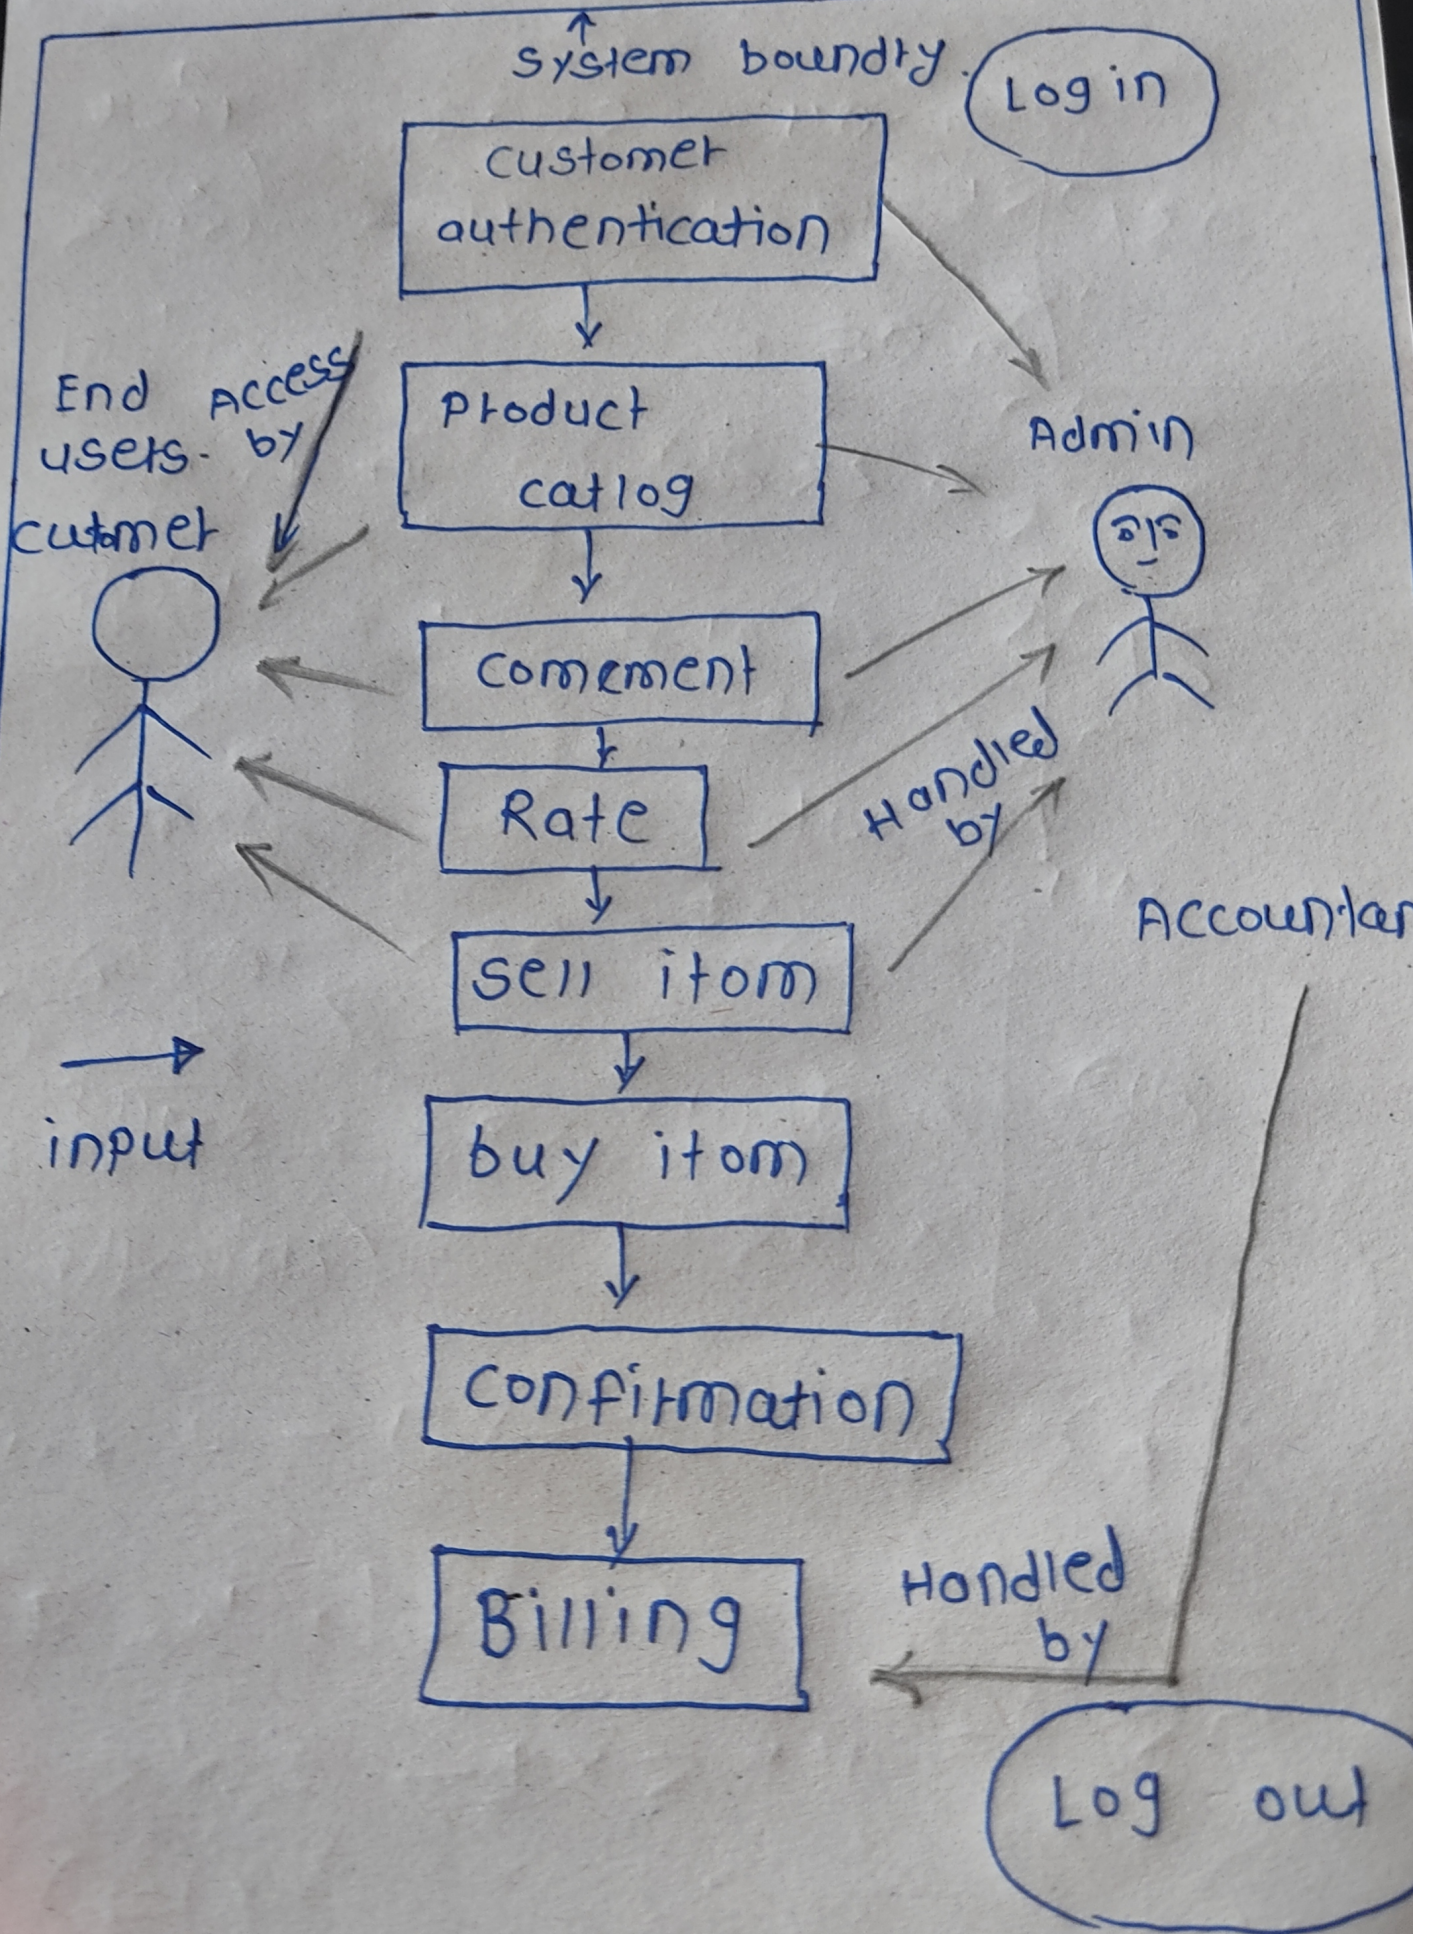 System boundry.
Log in
customer
authentication
End
users.
Access
by
Product
catlog
Admin
cutomer
comement
Rate
Handled
by
Accountan
sell itom
input
buy itom
confirmation
Billing
Handled
by
Log out